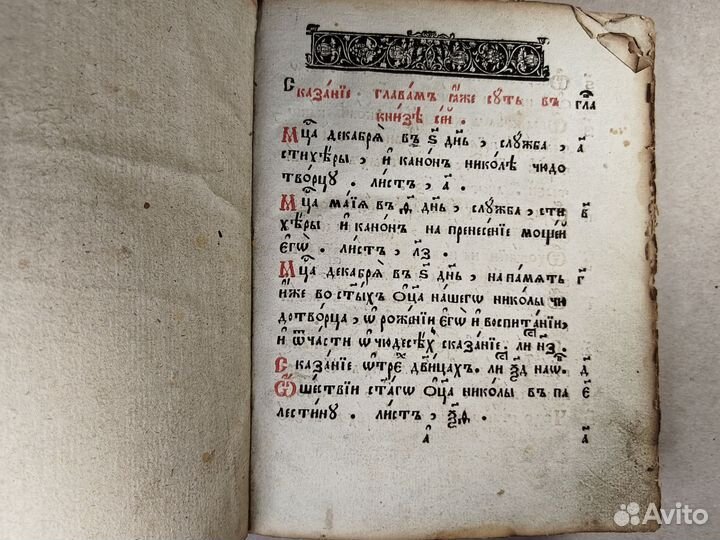 Сказа́нїе главамъ ꙗ҆̀же сꙋть въ гла
кни́зѣ се́й .
Мцⷭ҇а декабрѧ̀ въ ѕ҃ дн҃ь , слꙋжба , а҃
стихѣры , и҆ кано́нъ нико́лѣ чюдо
тво́рцꙋ . ли́стъ , а҃ .
Мцⷭ҇а ма́їѧ въ ѳ҃ дн҃ь , слꙋжба , сти в҃
хѣры и҆ кано́нъ на пренесе́нїе моще́й
є҆гѡ̀ . ли́стъ , л҃з .
Мцⷭ҇а декабрѧ̀ въ ѕ҃ дн҃ь , на па́мѧть г҃
и҆́же во ст҃ы́хъ ѻ҆ц҃а̀ на́шегѡ нико́лы чю
дотво́рца , ѡ҆ роже́нїи є҆гѡ̀ и҆ воспита́нїи ,
и҆ ѿча́сти ѡ҆ чюдесѣ́хъ сказа́нїе . лиⷭ҇ н҃з .
Сказа́нїе ѡ҆ трⷯе дв҃и́цахъ . лиⷭ҇ наѡ҆б д҃
Ѡ҆ ше́ствїи ст҃а́гѡ ѻ҆ц҃а̀ нико́лы въ па є҃
лести́нꙋ . ли́стъ , .
а҃ а҃
Avito